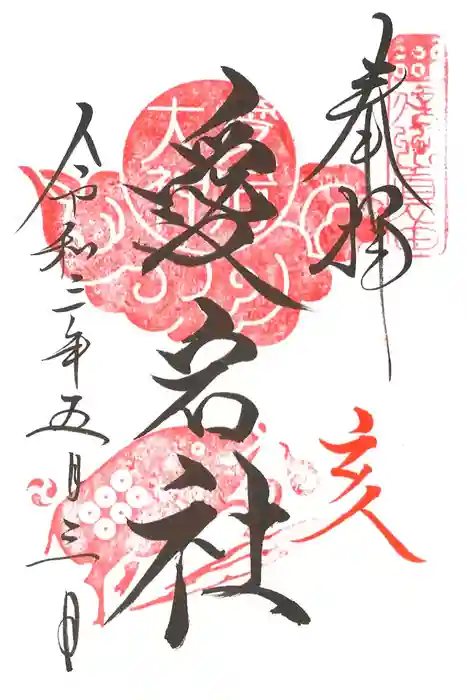 奉拝
亥
愛宕社
令和二年五月三日